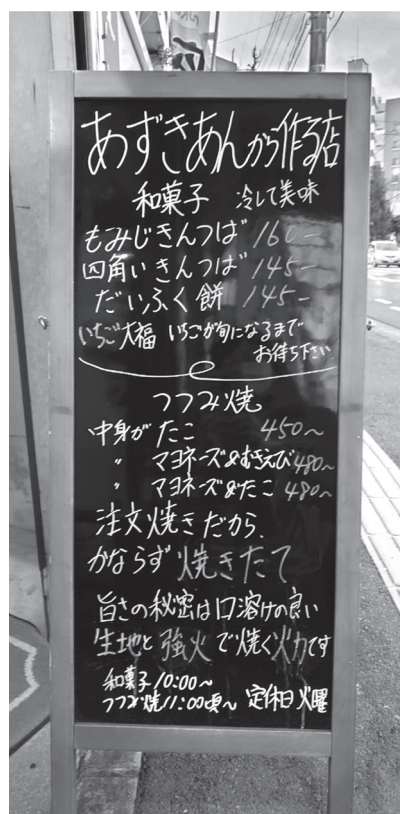 あずきあんから作る店
和菓子 冷して美味
もみじきんつば 160-
四角いきんつば 145-
だいふく餅 145-
いちご大福 いちごが旬になるまで
お待ち下さい
つつみ焼
中身が たこ 450~
〃 マヨネーズ&むきえび 480~
〃 マヨネーズ&たこ 480~
注文焼きだから、
かならず 焼きたて
旨さの秘密は口溶けの良い
生地と強火で焼く火力です
和菓子 10:00~
つつみ焼 11:00頃~ 定休日 火曜